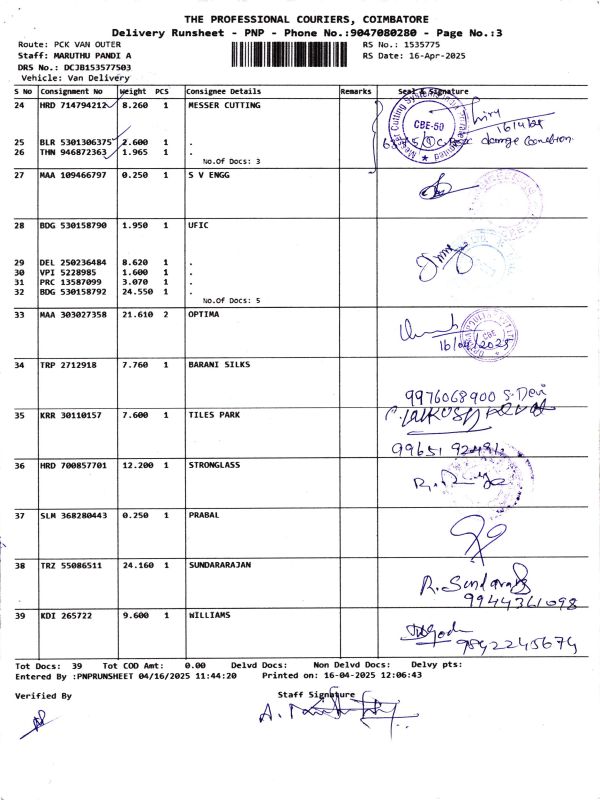 THE PROFESSIONAL COURIERS, COIMBATORE
Delivery Runsheet - PNP - Phone No.:9047080280 - Page No.:3
Route: PCK VAN OUTER RS No.: 1535775
Staff: MARUTHU PANDI A RS Date: 16-Apr-2025
DRS No.: DCJB153577503
Vehicle: Van Delivery
S No Consignment No Weight PCS Consignee Details Remarks Seal & Signature
24 HRD 714794212 8.260 1 MESSER CUTTING
CBE-50
16/4/25
25 BLR 5301306375 2.600 1 .
26 THN 946872363 1.965 1 .
No.Of Docs: 3
27 MAA 109466797 0.250 1 S V ENGG
28 BDG 530158790 1.950 1 UFIC
29 DEL 250236484 8.620 1 .
30 VPI 5228985 1.600 1 .
31 PRC 13587099 3.070 1 .
32 BDG 530158792 24.550 1 .
No.Of Docs: 5
33 MAA 303027358 21.610 2 OPTIMA
CBE
16/04/2025
34 TRP 2712918 7.760 1 BARANI SILKS
9976068900 S. Devi
35 KRR 30110157 7.600 1 TILES PARK
36 HRD 700857701 12.200 1 STRONGLASS
37 SLM 368280443 0.250 1 PRABAL
38 TRZ 55086511 24.160 1 SUNDARARAJAN
R. Sundararaj
9944361098
39 KDI 265722 9.600 1 WILLIAMS
9842245674
Tot Docs: 39 Tot COD Amt: 0.00 Delvd Docs: Non Delvd Docs: Delvy pts:
Entered By :PNPRUNSHEET 04/16/2025 11:44:20 Printed on: 16-04-2025 12:06:43
Verified By Staff Signature